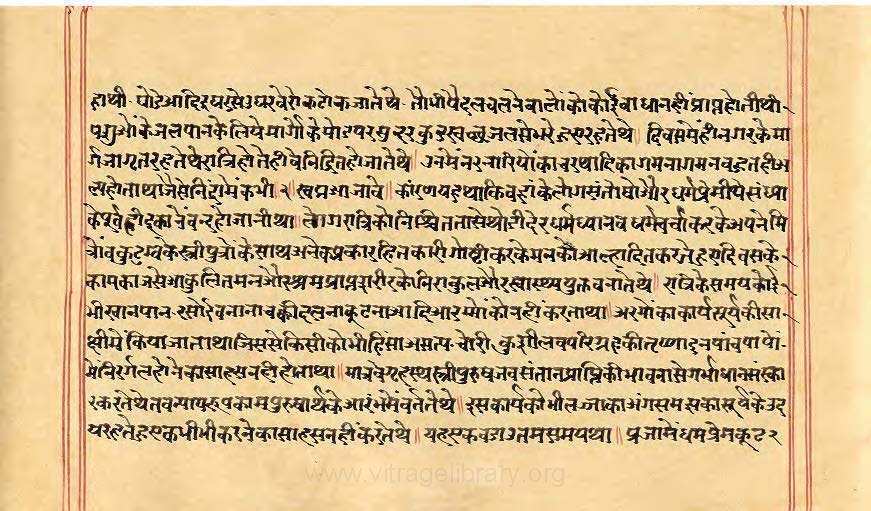 हाथी घोडे आदि इधर से उधर बेरोकटोक जाते थे तो भी पैदल चलने वालों को कोई बाधा नहीं प्राप्त होती थी
पशुओं के जलपान के लिये मार्गों के मोड पर सुन्दर कुण्ड स्वच्छ जल से भरे हुए रहते थे ॥ दिवस में ही नगर के मा
र्ग जागृत रहते थे रात्रि होते ही वे निद्रित हो जाते थे ॥ उनमें नर नारियों का व रथादि का गमनागमन बहुत ही अ
ल्प होता था जैसे निद्रा में कभी २ स्वप्न आ जावे ॥ कारण यह था कि वहां के लोग संतोषी और धर्मप्रेमी थे संध्या
के पूर्व ही दूकानें बन्द हो जाती थी ॥ लोग रात्रि को निश्चिंतता से थोडी देर धर्मध्यान व धर्मचर्चा करके अपने मि
त्रों व कुटुम्ब के स्त्री पुत्रों के साथ अनेक प्रकार हितकारी गोष्ठी करके मन को आल्हादित करते हुए दिवस के
काम काज से आकुलित मन और श्रम प्राप्त शरीर को निराकुल और स्वास्थ्ययुक्त बनाते थे ॥ रात्रि के समय कोई
भी खान पान रसोई बनाना चक्की दलना कूटना आदि आरम्भों को नहीं करता था ॥ आरंभों का कार्य सूर्य की सा
क्षी में किया जाता था जिससे किसी को भी हिंसा असत्य चोरी कुशील व परिग्रह की तृष्णा इन पांच पापों
में निरर्गल होने का साहस नहीं होता था ॥ मात्र व गृहस्थ स्त्री पुरुष जब संतान प्राप्ति की भावना से गर्भाधान संस्का
र करते थे तब न्यायरूप काम पुरुषार्थ के आरंभ में वर्तते थे ॥ इस कार्य को भी लज्जा का अंग समझकर सूर्य के उद
य रहते हुए कभी भी करने का साहस नहीं करते थे ॥ यह एक बडा उत्तम समय था ॥ प्रजा में धर्म प्रेम कूट २
www.vitragelibrary.org